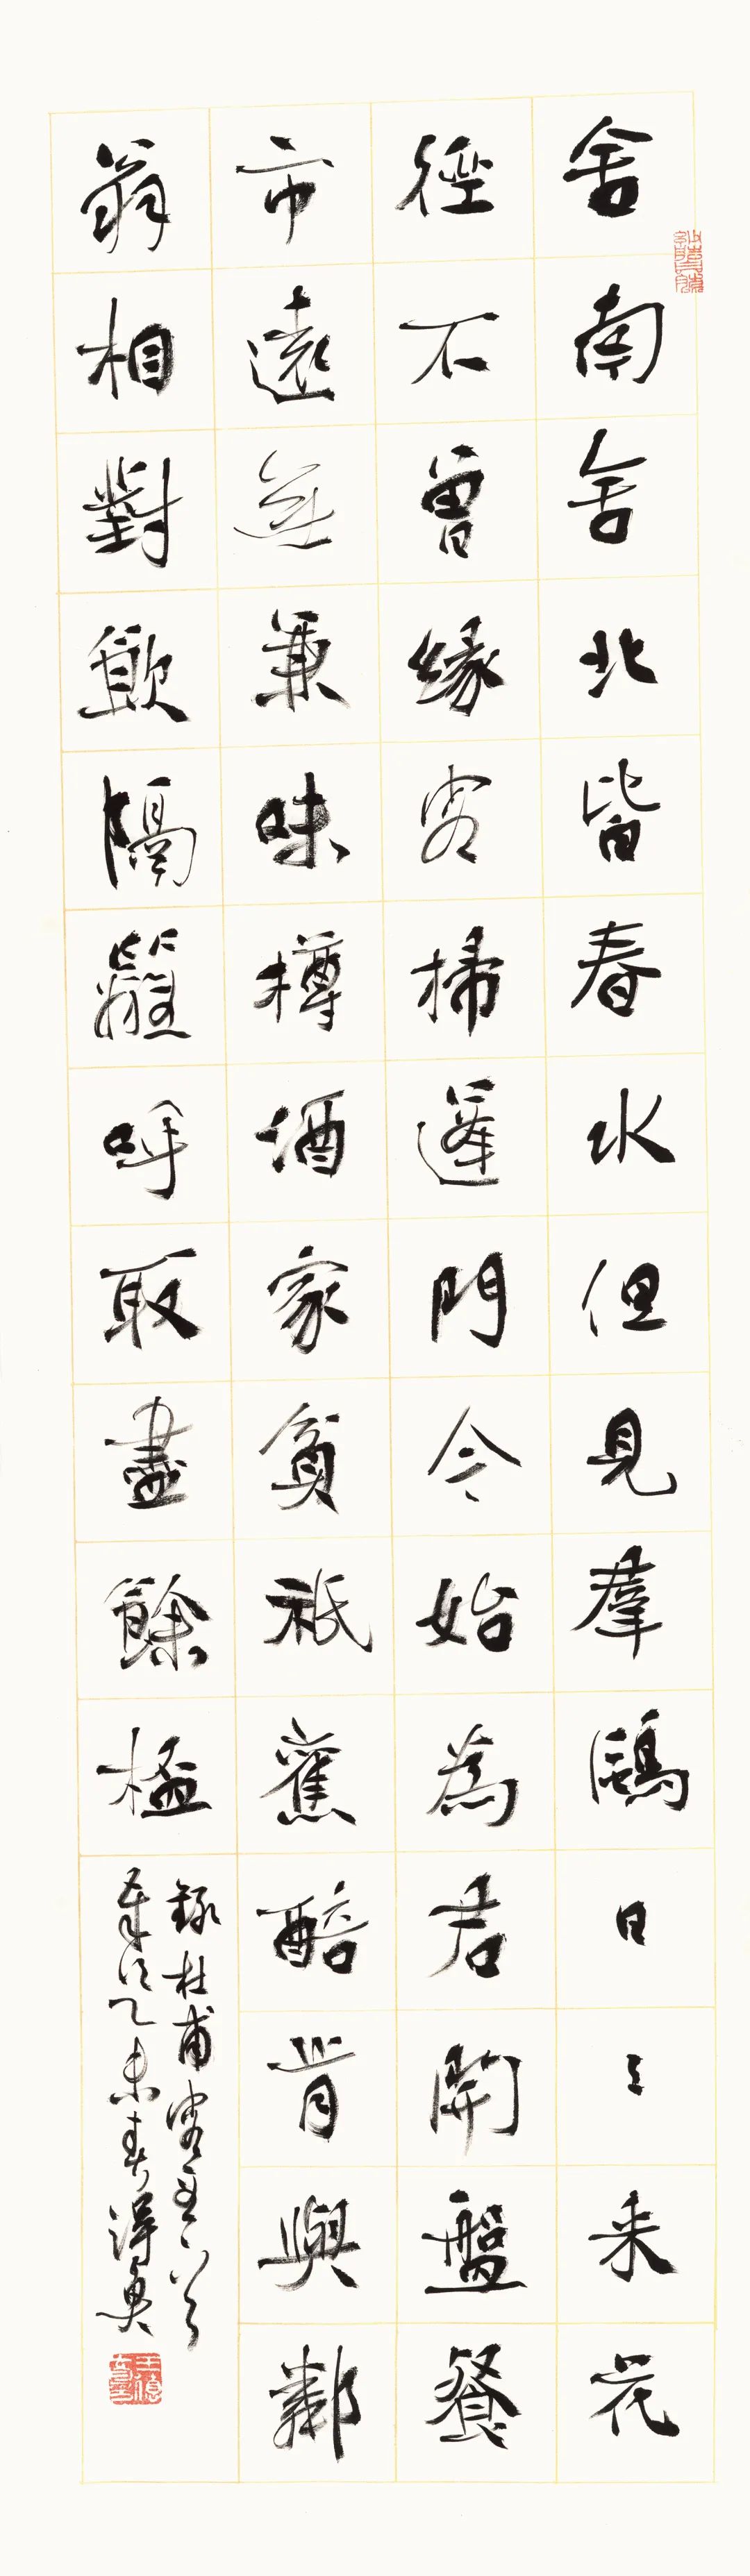 舍南舍北皆春水但見羣鷗日〻来花
徑不曾緣客掃蓬門今始為君開盤餐
市遠無兼味樽酒家貧秖舊醅肯與鄰
翁相對飲隔籬呼取盡餘杯
錄杜甫客至一首
乙未春